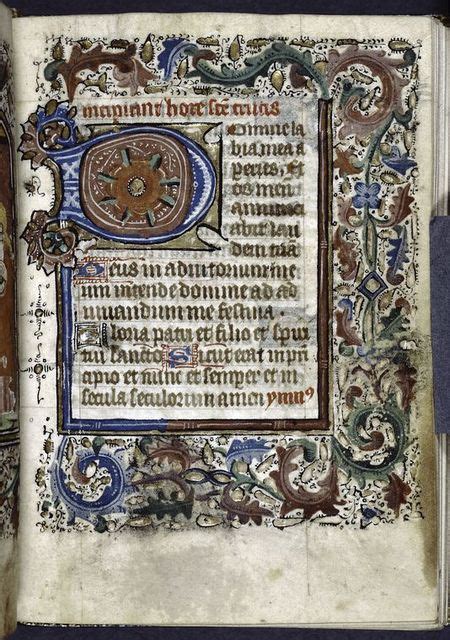 Incipiunt hore scē crucis
Domine la
bia mea a
peries, et
os meū
annunci
abit lau
dem tuā
Deus in adiutorium me
um intende domine ad ad
iuuandum me festina.
Gloria patri et filio et spiri
tui sancto Sicut erat in prin
cipio et nunc et semper et in
secula seculorum amen ymnꝰ